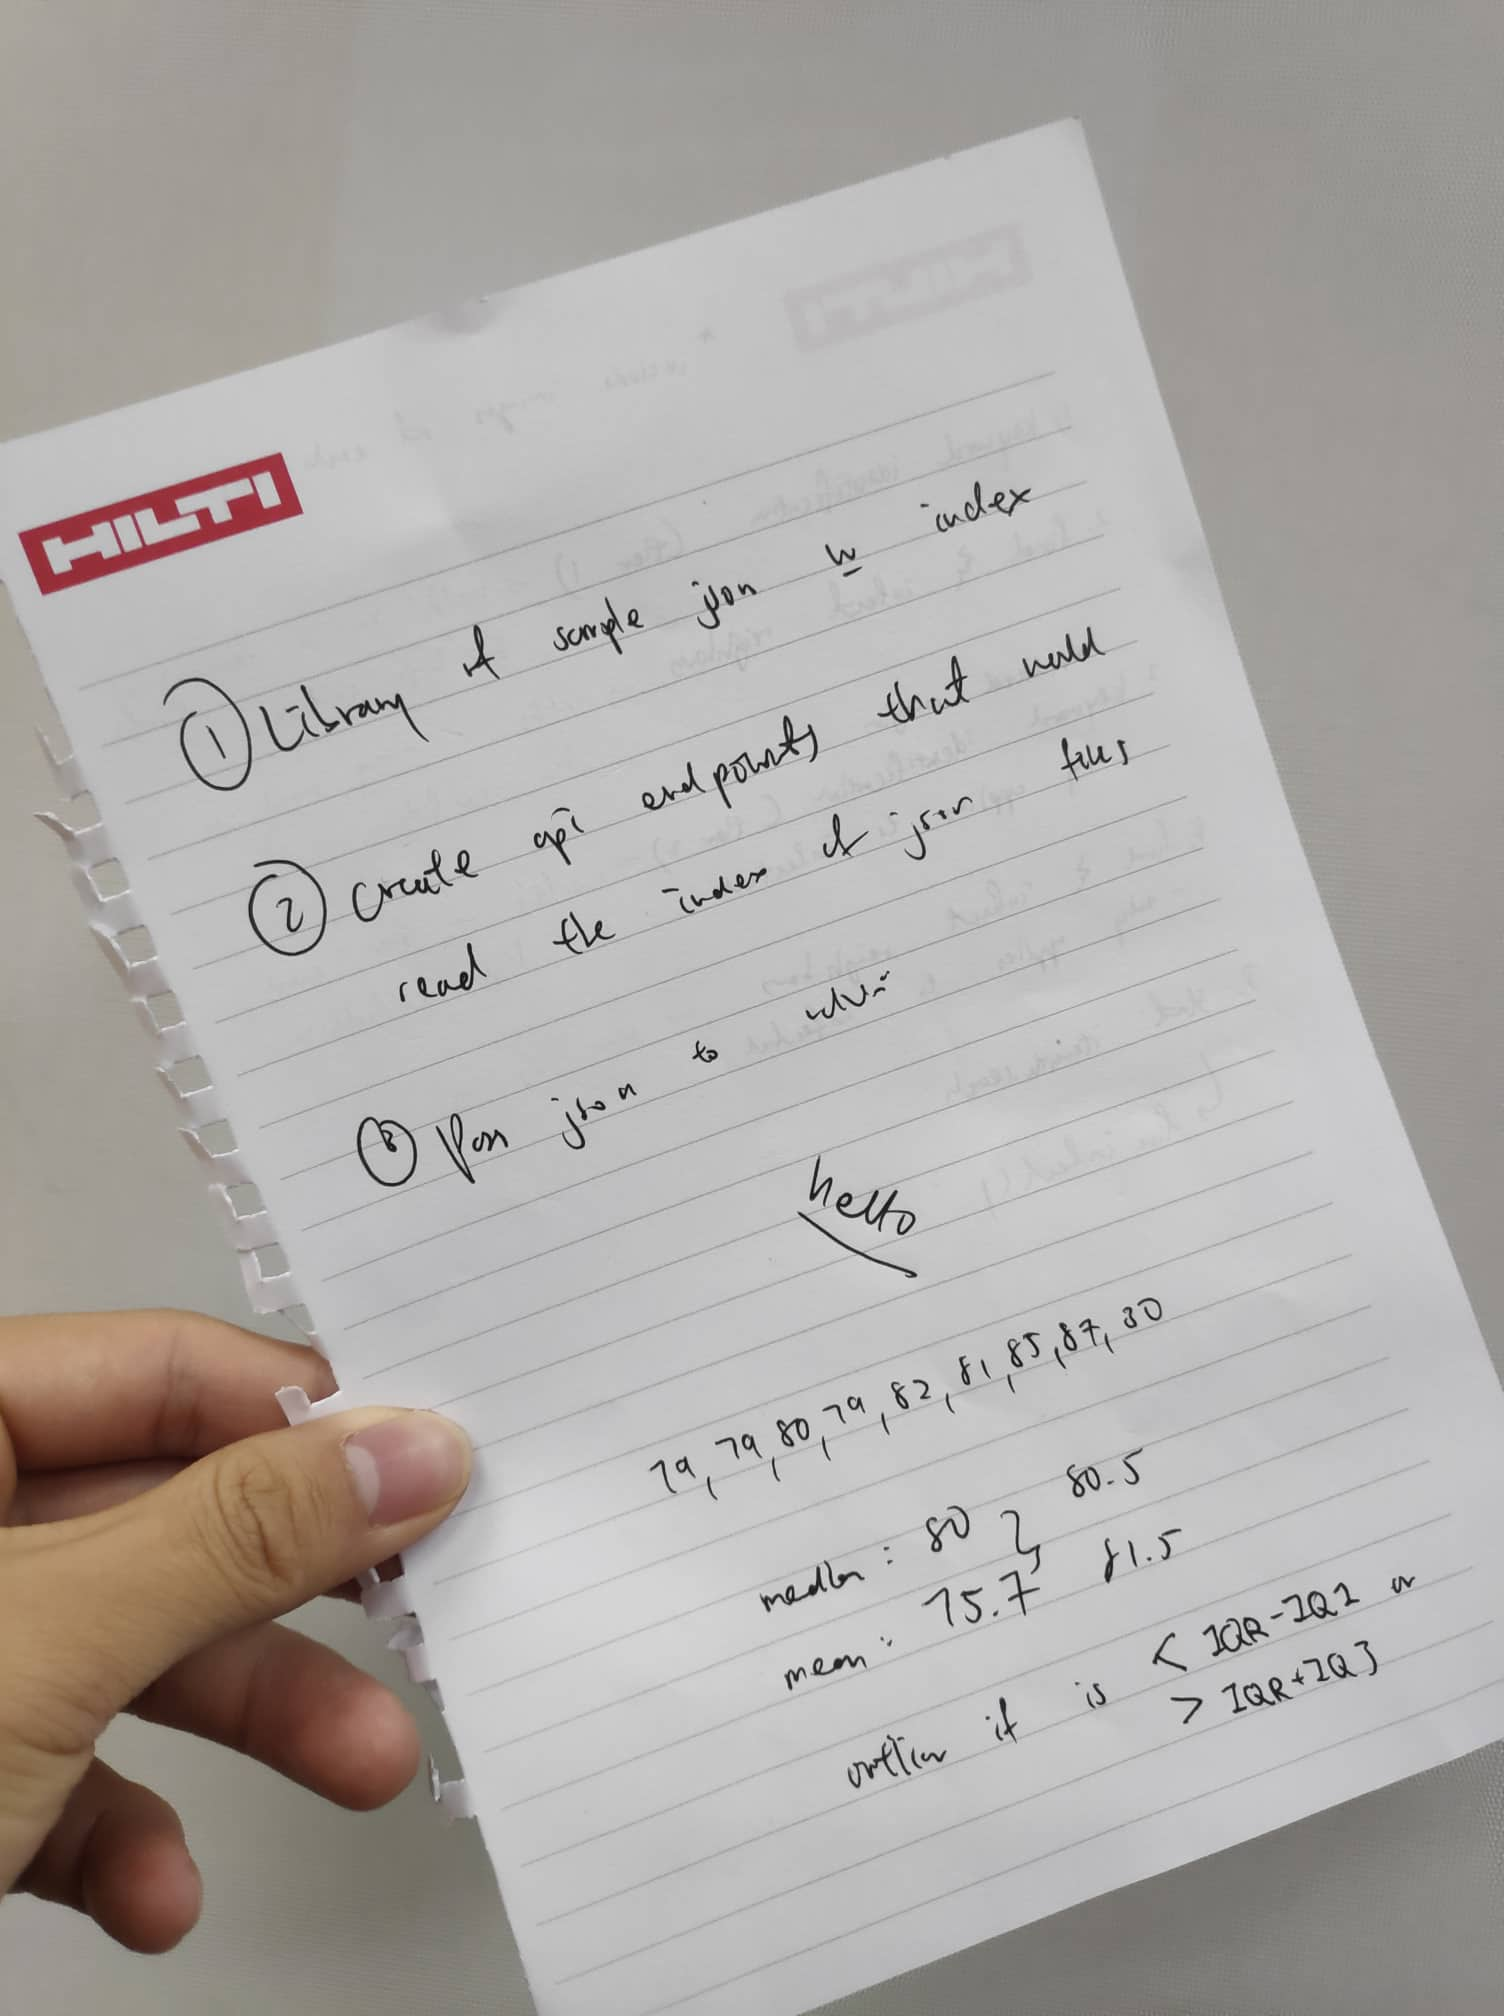 HILTI
① Library of sample json w index
② create api endpoints that would
read the index of json files
③ Pass json to
hello
79, 79, 80, 79, 82, 81, 85, 87, 30
median : 80 80.5
mean : 75.7 81.5
outlier if is < IQR-IQ1 or
> IQR+IQ3